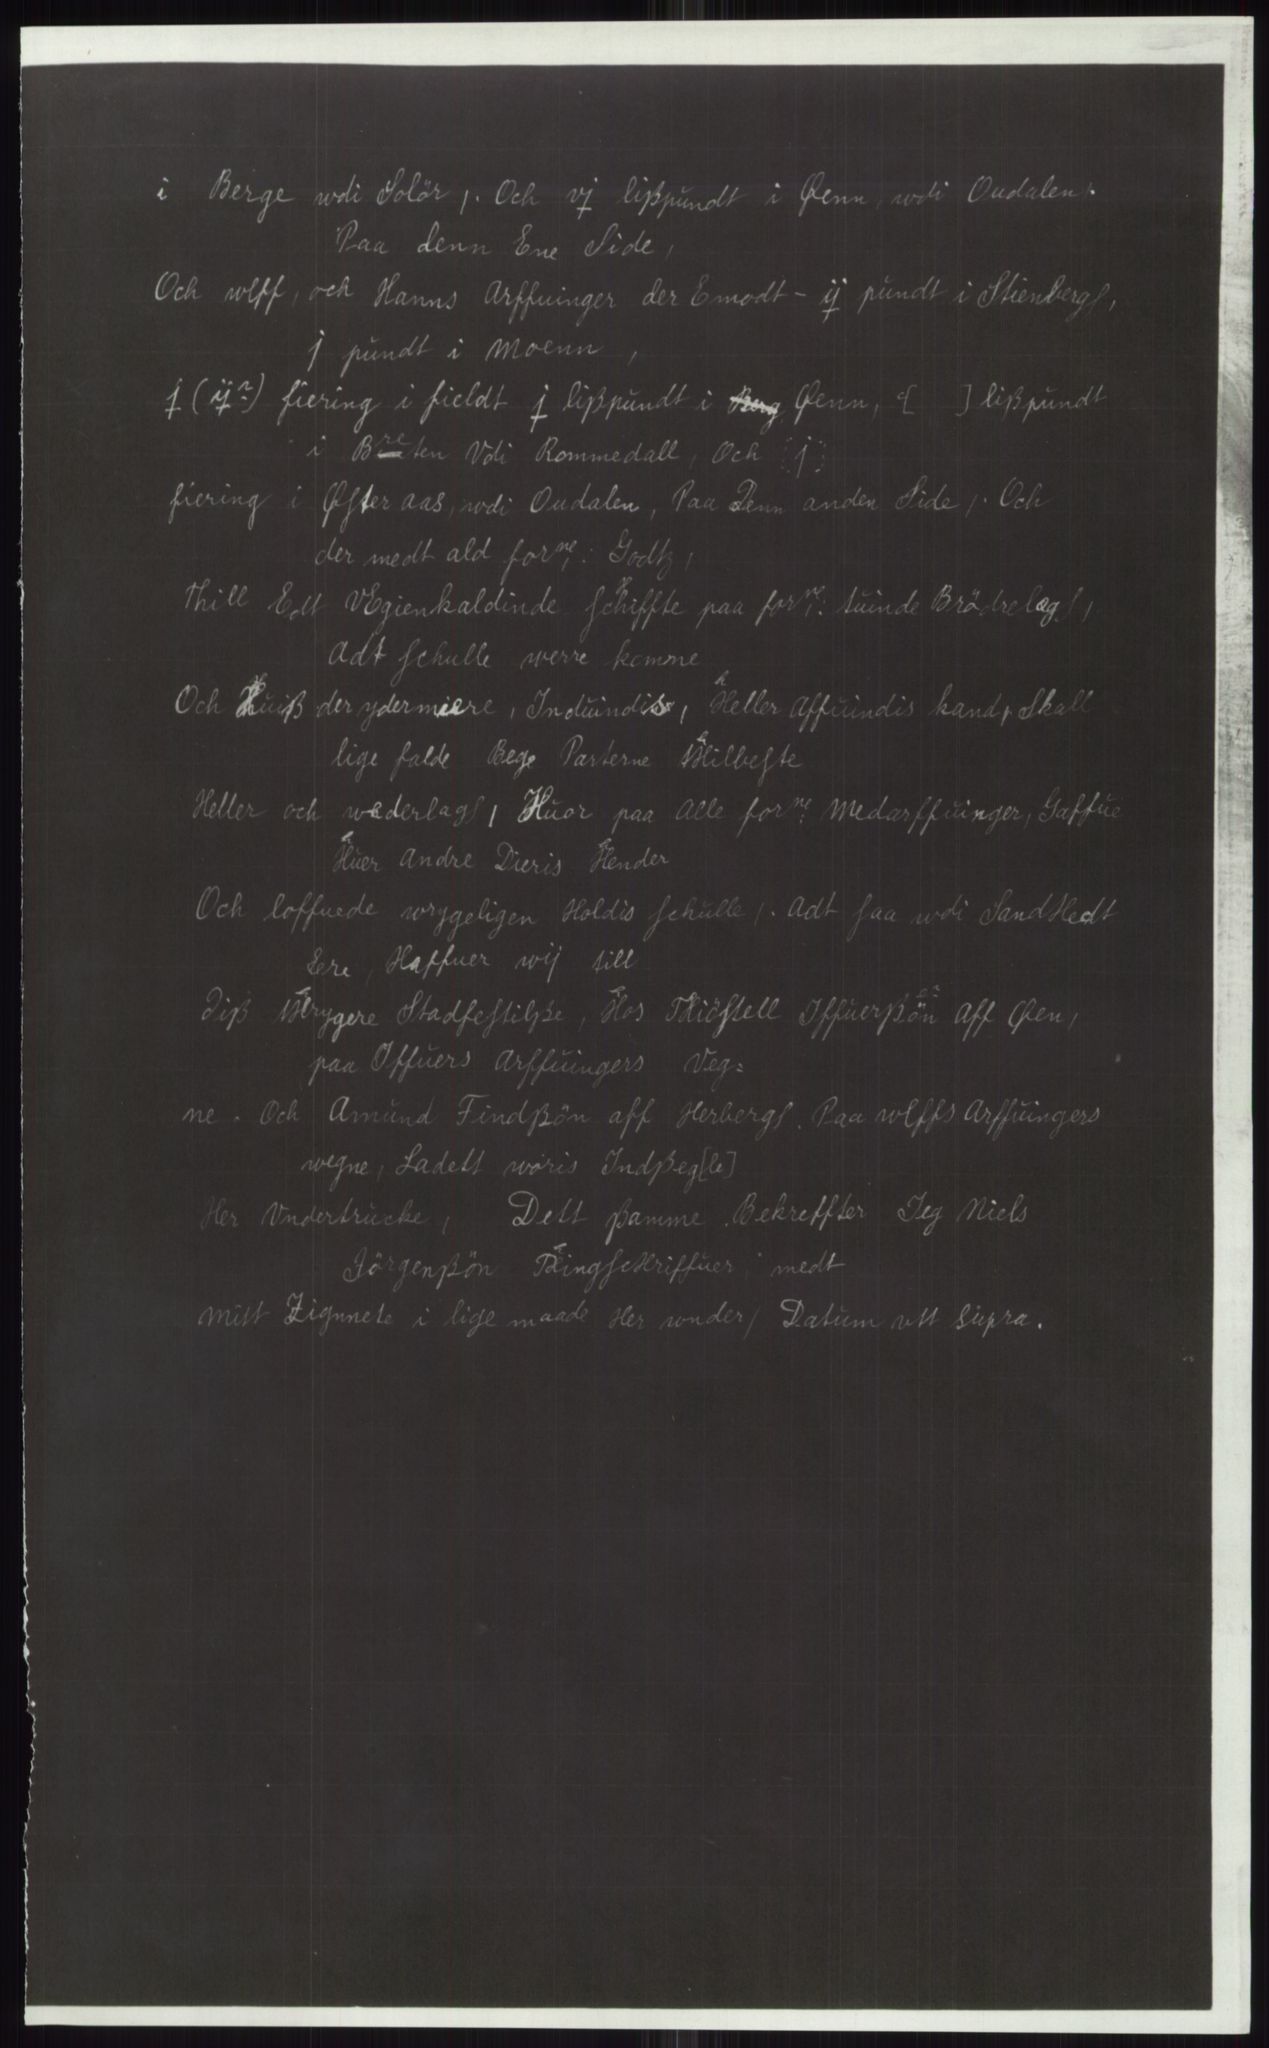 i Berge wdi Solör /. Och vj lißpundt i Øenn, wdi Oudalen /.
Paa denn Ene Side,
Och wlff, och Hanns Arffuinger der Emodt - ij pundt i Stienberg,
j pundt i Moenn,
j (ij?) fiering i fieldt j lißpundt i Øenn, [ ] lißpundt
i Breten Vdi Rommedall, Och [j]
fiering i Øfter aas, wdi Oudalen, Paa Denn anden Side /. Och
der medt ald forne: Godtz,
thill Ett VEgienkaldinde schiffte paa forne: tuinde Brödrelag,
Adt schulle werre komme
Och Huiß der ydermiere, Induindis, Heller Affuindis kand, Skall
lige falde Bege Parterne thilbeste
Heller och wederlag, Huor paa Alle forne: Medarffuinger, Gaffue
Huer Andre Dieris Hender
Och loffuede wrygeligen Holdis schulle /. Adt saa wdi Sandhedt
Ere, Haffuer wij till
diß thrygere Stadfestilße, Hos Thiöstell Iffuerßön aff Øen,
paa Iffuers Arffuingers Veg=
ne. Och Amund Findßön aff Herberg. Paa wlffs Arffuingers
wegne, Ladett woris Indßeg[le]
Her Vndertrucke, Dett ßamme Bekreffter Jeg Niels
Jörgenßön Thingschriffuer, medt
Mitt Zignnete i lige maade Her wnder / Datum vtt supra.